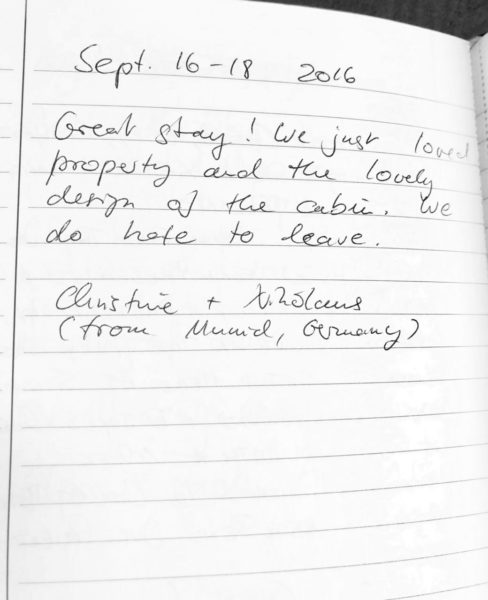 Sept. 16-18 2016
Great stay! We just loved
property and the lovely
design of the cabin. We
do hate to leave.
Christine + Nikolaus
(from Munich, Germany)